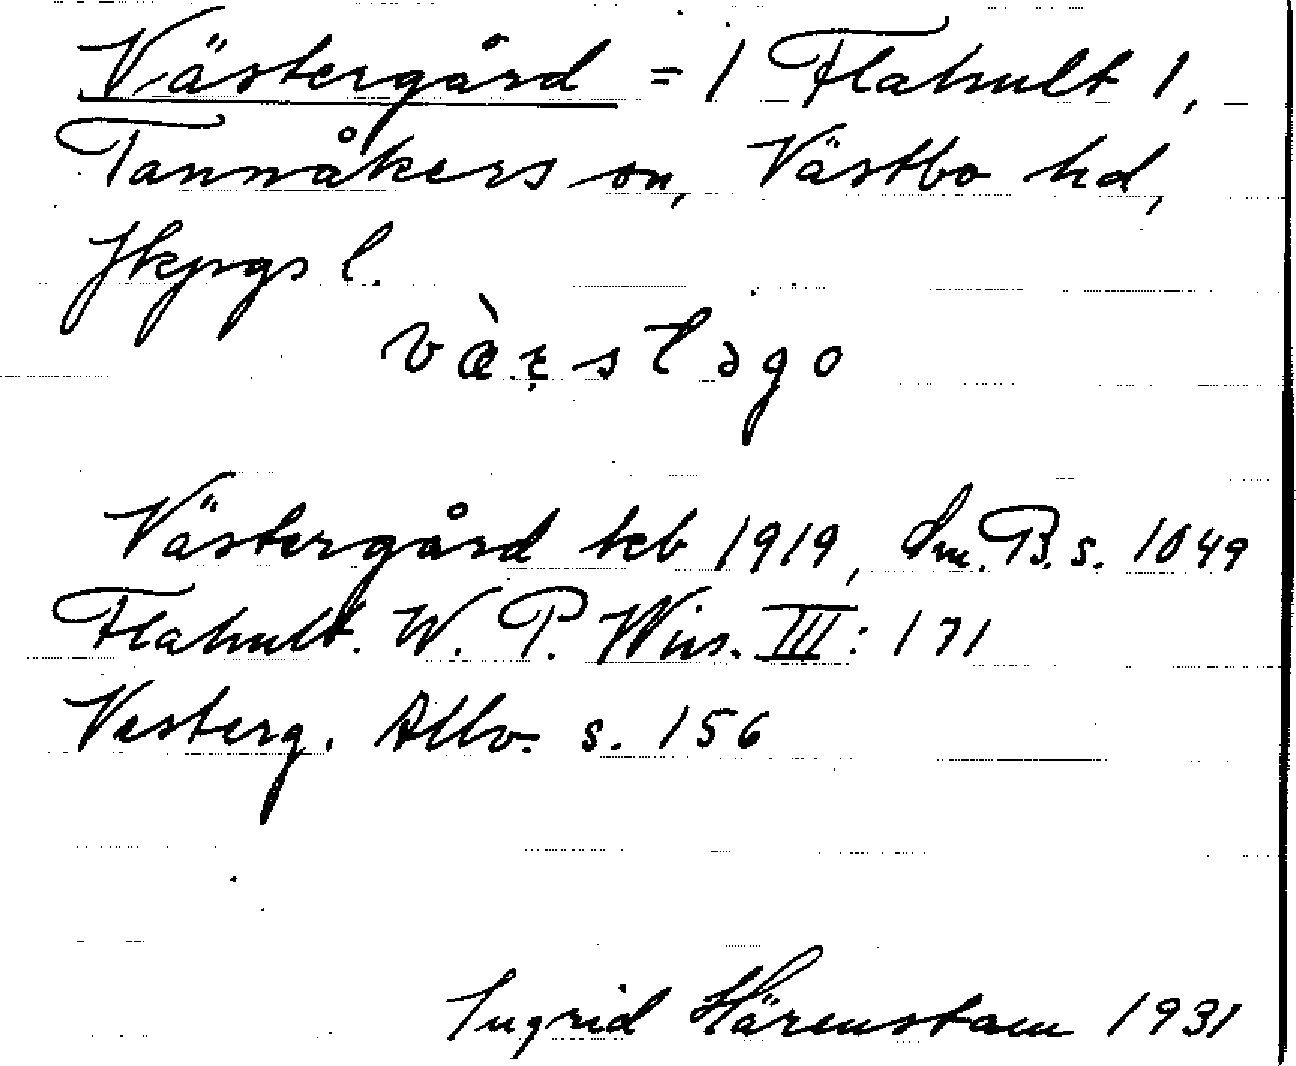 Västergård = 1 Flahult 1,
Tannåkers sn, Västbo hd,
Jkpgs l.
Västergård teb 1919, Sm. B. s. 1049
Flahult. W. P. Wins. III: 171
Vesterg. Allv. s. 156
Ingrid Härenstam 1931